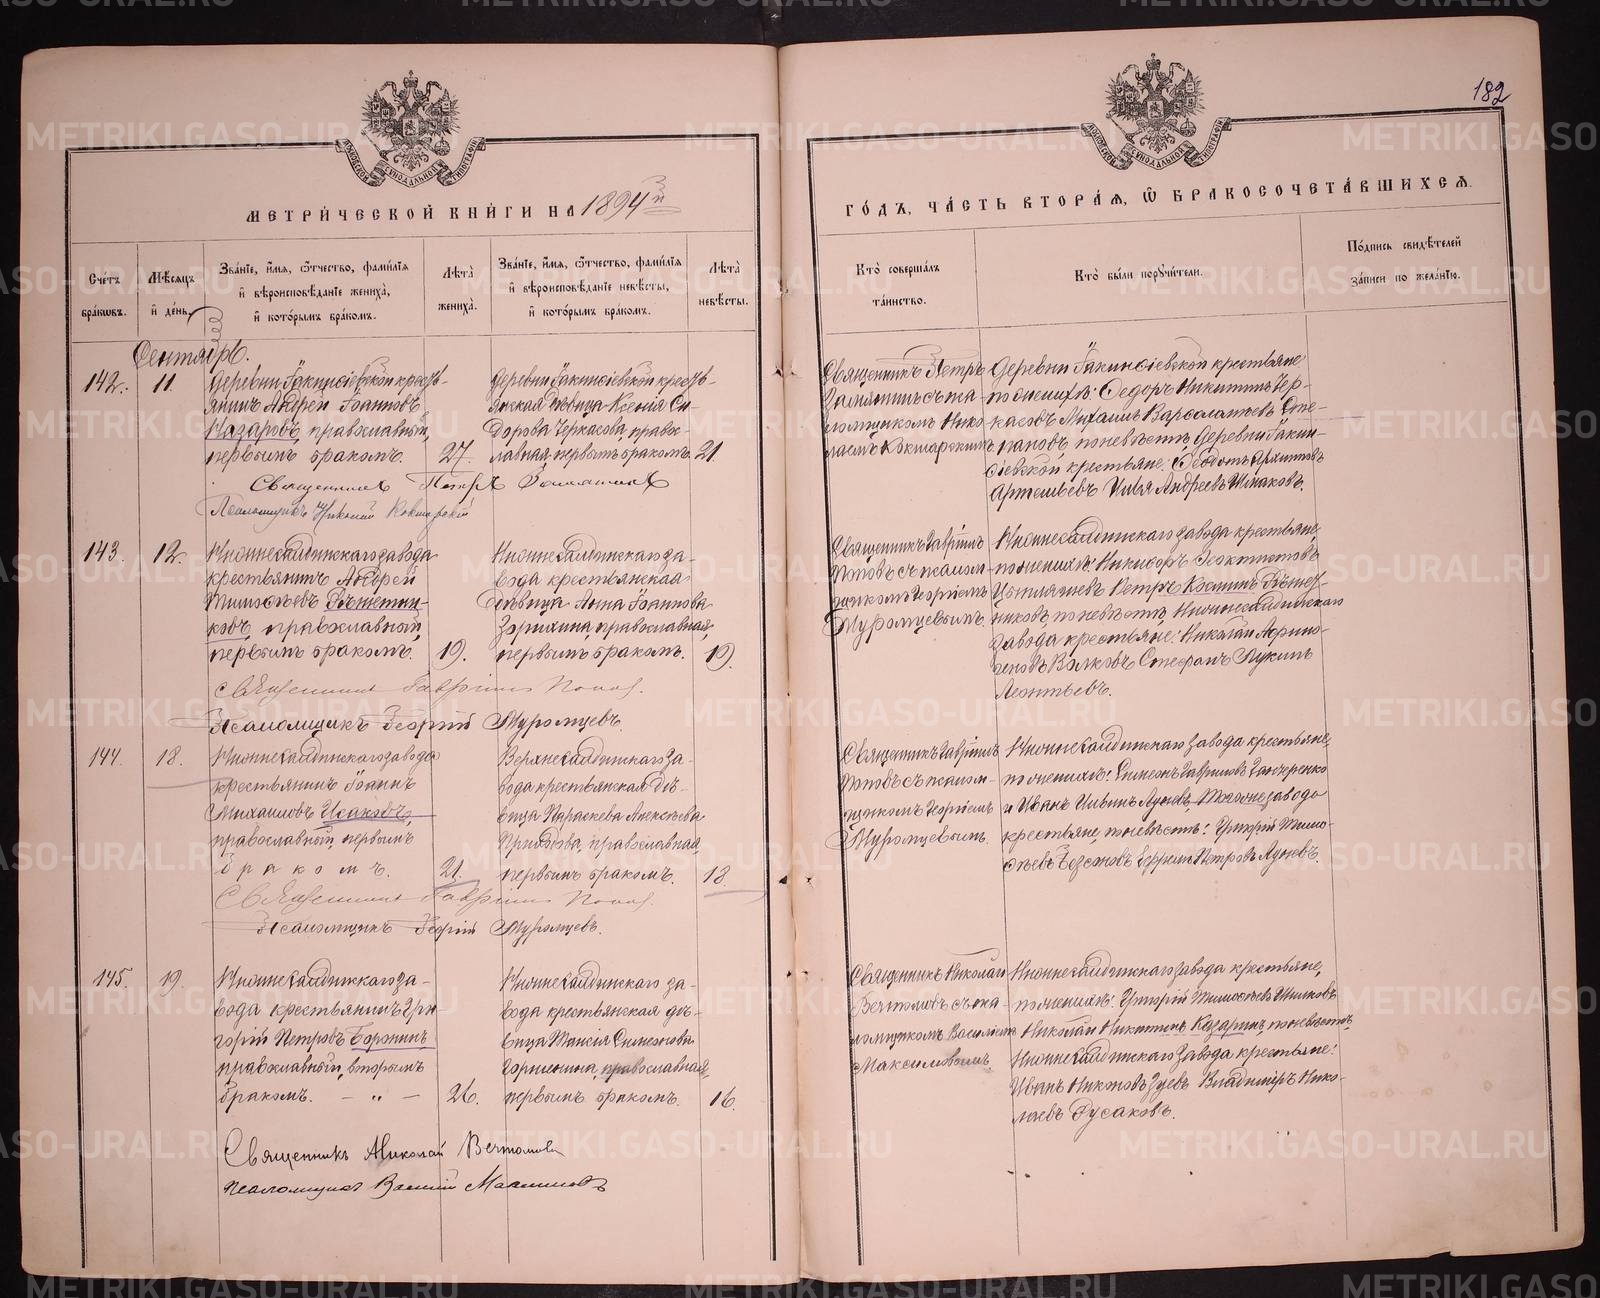 182
МЕТРИ́ЧЕСКОЙ КНИ́ГИ НА 1894й
ГО́ДЪ, ЧА́СТЬ ВТОРА́Я, Ѡ БРАКОСОЧЕТА́ВШИХСЯ.
Сче́тъ бра́кωвъ.
Мѣ́сяцъ и де́нь.
Зва́нїе, и́мя, ѻ́тчество, фами́лїя
и҆ вѣроисповѣ́данїе жениха̀,
и҆ кото́рымъ бра́комъ.
Лѣ́та жениха̀.
Зва́нїе, и́мя, ѻ́тчество, фами́лїя
и҆ вѣроисповѣ́данїе невѣ́сты,
и҆ кото́рымъ бра́комъ.
Лѣ́та невѣ́сты.
Кто̀ соверша́лъ
та́инство.
Кто̀ бы́ли порꙋчи́тели.
По́дпись свидѣ́телей
за́писи по жела́нїю.
Сентябрь.
142. 11.
Деревни Гакинсіевской кресть-
янинъ Андрей Іоанновъ
Назаровъ, православный,
первымъ бракомъ. 27.
Деревни Гакинсіевской кресть-
янская дѣвица Ксенія Си-
дорова Черкасова, правос-
лавная, первымъ бракомъ. 21
Священникъ Петръ
съ пса-
ломщикомъ Нико-
лаемъ Кокшарскимъ.
Деревни Гакинсіевской крестьяне
по женихѣ: Ѳедоръ Никитинъ Чер-
касовъ, Михаилъ Варѳоламеевъ Сте-
пановъ, по невѣстѣ, Деревни Гакин-
сіевской крестьяне: Ѳедотъ Архиповъ
Артемьевъ, Илья Андреевъ Ишмаковъ.
Священникъ Петръ
Псаломщикъ Николай Кокшарскій
143. 12.
Нижнесалдинскаго завода
крестьянинъ Андрей
Тимоѳѣевъ
православный,
первымъ бракомъ. 19.
Нижнесалдинскаго за-
вода крестьянская
дѣвица Анна Іоаннова
Зорихина, православная,
первымъ бракомъ. 19.
Священникъ Гавріилъ
Поповъ съ псалом-
щикомъ Георгіемъ
Муромцевымъ.
Нижнесалдинскаго завода крестьяне,
по женихѣ: Никифоръ Ѳеоктистовъ
Петръ Козминъ
по невѣстѣ, Нижнесалдинскаго
завода крестьяне: Николай Аѳрино-
геновъ Волковъ, Стефанъ Лукинъ
Леонтьевъ.
Священникъ Гавріилъ Поповъ.
Псаломщикъ Георгій Муромцевъ.
144. 18.
Нижнесалдинскаго завода
крестьянинъ Іоаннъ
Михаиловъ Исаковъ,
православный, первымъ
бракомъ. 21.
Верхнесалдинскаго за-
вода крестьянская дѣ-
вица Параскева Алексѣева
православная,
первымъ бракомъ. 18.
Священникъ Гавріилъ
Поповъ съ псалом-
щикомъ Георгіемъ
Муромцевымъ.
Нижнесалдинскаго завода крестьяне,
по женихѣ: Симеонъ Гавриловъ
и Иванъ тогоже завода
крестьяне, по невѣстѣ: Григорій Тимо-
ѳѣевъ Ефремъ Петровъ
Священникъ Гавріилъ Поповъ.
Псаломщикъ Георгій Муромцевъ.
145. 19.
Нижнесалдинскаго за-
вода крестьянинъ Гри-
горій Петровъ Боронинъ
православный, вторымъ
бракомъ. — „ — 26.
Нижнесалдинскаго за-
вода крестьянская дѣ-
вица Таисія Симеонова
православная,
первымъ бракомъ. 16.
Священникъ Николай
съ пса-
ломщикомъ Василіемъ
Максимовымъ.
Нижнесалдинскаго завода крестьяне,
по женихѣ: Григорій Тимоѳѣевъ Шипковъ
Николай Никитинъ Казаринъ, по невѣстѣ,
Нижнесалдинскаго завода крестьяне:
Иванъ Никоновъ Зуевъ, Владиміръ Нико-
лаевъ Русаковъ.
Священникъ Николай
псаломщикъ Василій Максимовъ
METRIKI.GASO-URAL.RU